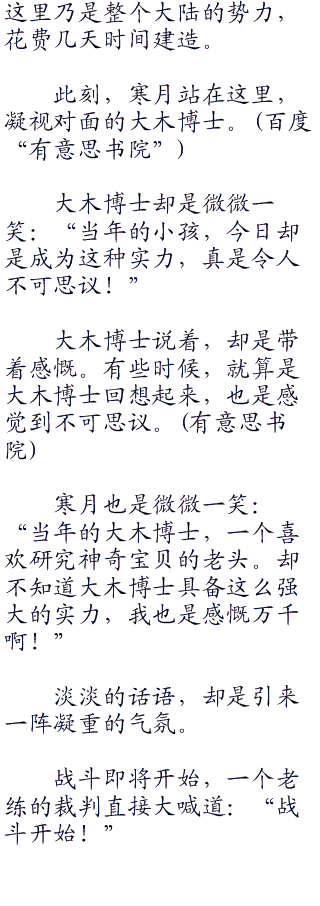 这里乃是整个大陆的势力，
花费几天时间建造。
此刻，寒月站在这里，
凝视对面的大木博士。(百度
“有意思书院”)
大木博士却是微微一
笑：“当年的小孩，今日却
是成为这种实力，真是令人
不可思议！”
大木博士说着，却是带
着感慨。有些时候，就算是
大木博士回想起来，也是感
觉到不可思议。(有意思书
院)
寒月也是微微一笑：
“当年的大木博士，一个喜
欢研究神奇宝贝的老头。却
不知道大木博士具备这么强
大的实力，我也是感慨万千
啊！”
淡淡的话语，却是引来
一阵凝重的气氛。
战斗即将开始，一个老
练的裁判直接大喊道：“战
斗开始！”